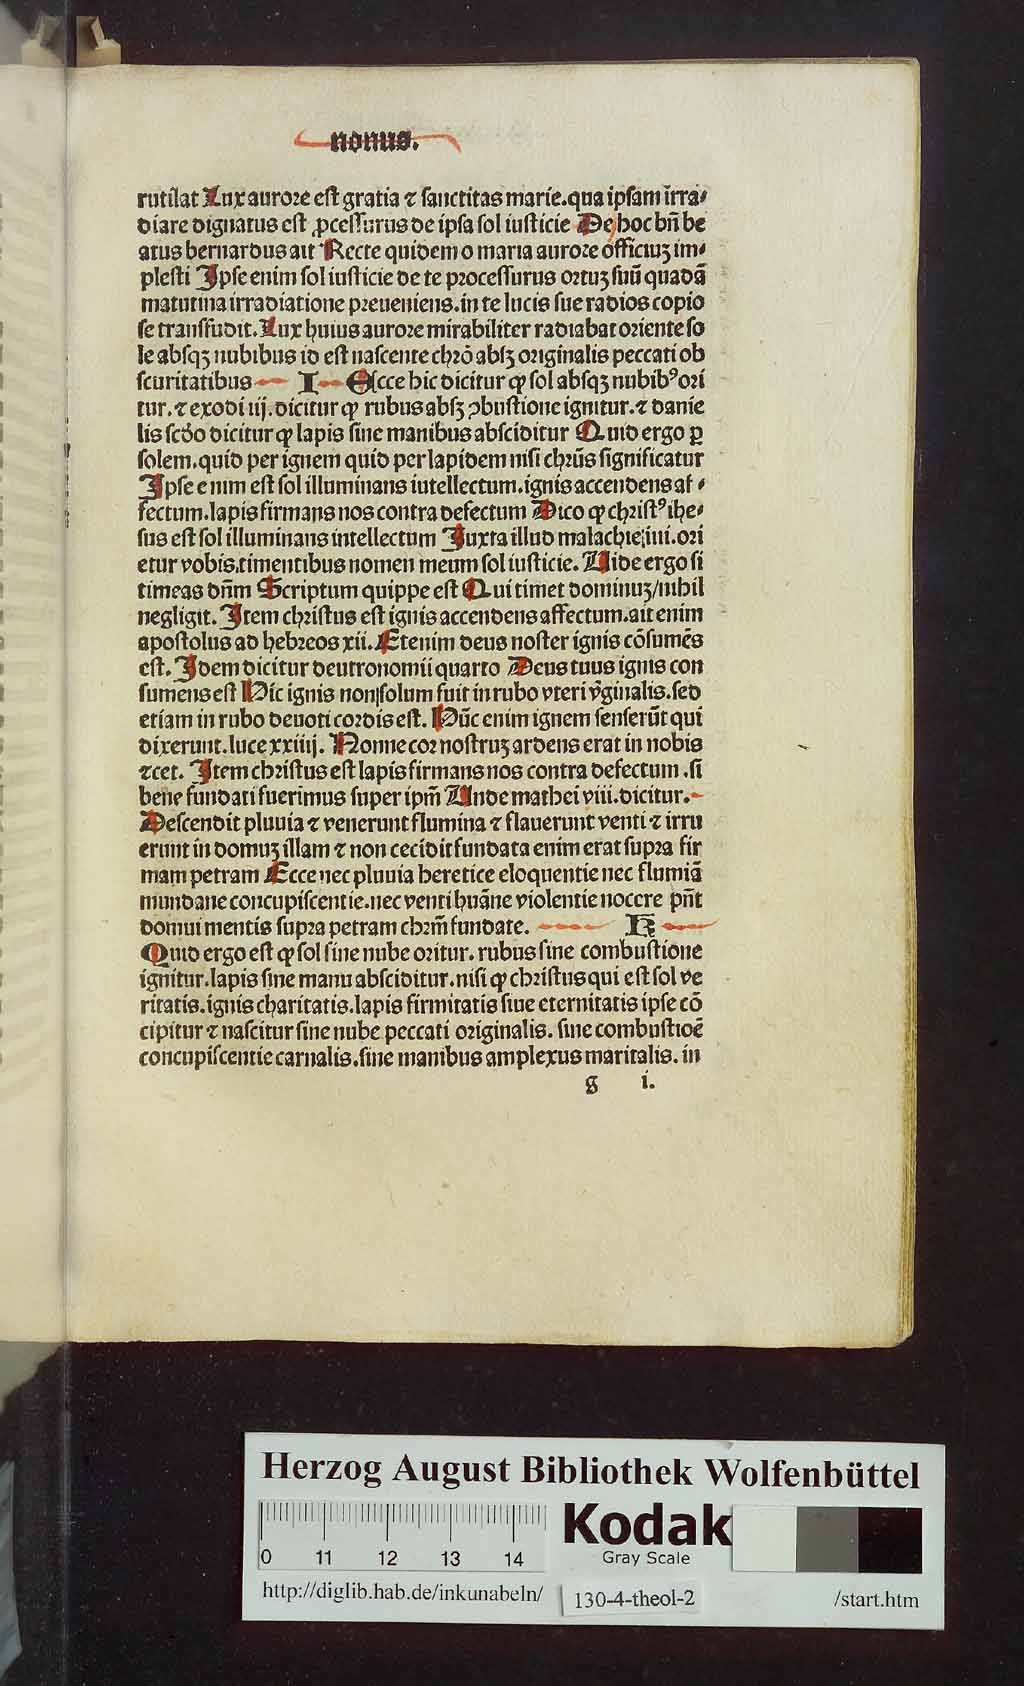 nonus.
rutilat Lux aurore est gratia ⁊ sanctitas marie.qua ipsam irra⸗
diare dignatus est ꝓcessurus de ipsa sol iusticie De hoc bn̄ be
atus bernardus ait Recte quidem o maria aurore officiuȝ im⸗
plesti Ipse enim sol iusticie de te processurus ortuȝ suū quadā
matutina irradiatione preueniens.in te lucis sue radios copio
se transfudit.Lux huius aurore mirabiliter radiabat oriente so
le absqȝ nubibus id est nascente chrō absȝ originalis peccati ob
scuritatibus I Ecce hic dicitur ꝙ sol absqȝ nubibꝰ ori
tur.⁊ exodi iij.dicitur ꝙ rubus absȝ ꝯbustione ignitur.⁊ danie
lis scdo dicitur ꝙ lapis sine manibus absciditur Quid ergo ꝑ
solem.quid per ignem quid per lapidem nisi chrūs significatur
Ipse enim est sol illuminans iutellectum.ignis accendens af⸗
fectum.lapis firmans nos contra defectum Dico ꝙ christꝰ ihe⸗
sus est sol illuminans intellectum Juxta illud malachie iiii.ori
etur vobis.timentibus nomen meum sol iusticie. Uide ergo si
timeas dn̄m Scriptum quippe est Qui timet dominuȝ/nihil
negligit. Item christus est ignis accendens affectum.ait enim
apostolus ad hebreos xii.Etenim deus noster ignis cōsumēs
est. Idem dicitur deutronomii quarto Deus tuus ignis con
sumens est Hic ignis non solum fuit in rubo vteri v̄ginalis.sed
etiam in rubo deuoti cordis est. Hūc enim ignem senserūt qui
dixerunt.luce xxiiij. Nonne cor nostruȝ ardens erat in nobis
⁊cet. Item christus est lapis firmans nos contra defectum .si
bene fundati fuerimus super ipm̄ Unde mathei viii.dicitur.
Descendit pluuia ⁊ venerunt flumina ⁊ flauerunt venti ⁊ irru
erunt in domuȝ illam ⁊ non cecidit fundata enim erat supra fir
mam petram Ecce nec pluuia heretice eloquentie nec flumiā
mundane concupiscentie.nec venti huāne violentie nocere pn̄t
domui mentis supra petram chrm̄ fundate. K
Quid ergo est ꝙ sol sine nube oritur. rubus sine combustione
ignitur.lapis sine manu absciditur.nisi ꝙ christus qui est sol ve
ritatis.ignis charitatis.lapis firmitatis siue eternitatis ipse cō
cipitur ⁊ nascitur sine nube peccati originalis. sine combustioē
concupiscentie carnalis.sine manibus amplexus maritalis. in
g i.
Herzog August Bibliothek Wolfenbüttel
0 11 12 13 14
Kodak
Gray Scale
http://diglib.hab.de/inkunabeln/ 130-4-theol-2 /start.htm